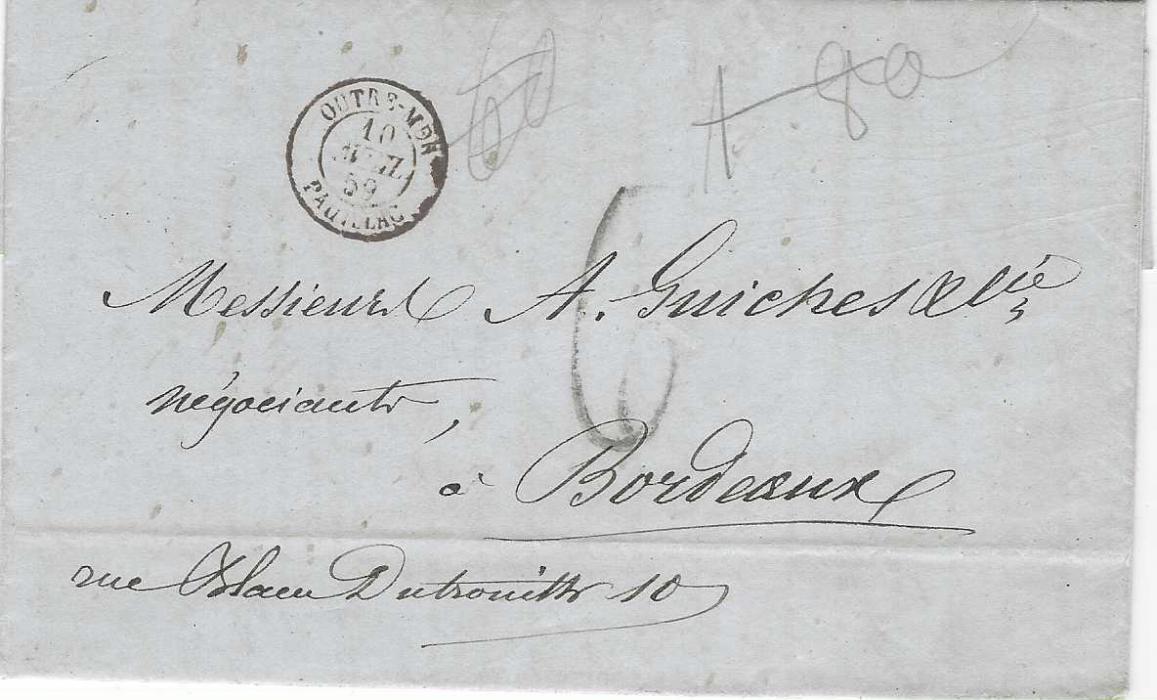 OUTRE-MER
10
59
PAUILLAC
60
A- 80
6
Messieurs A. Guiches & Cie
négociants,
à Bordeaux
rue Blanc Dutrouilh 10